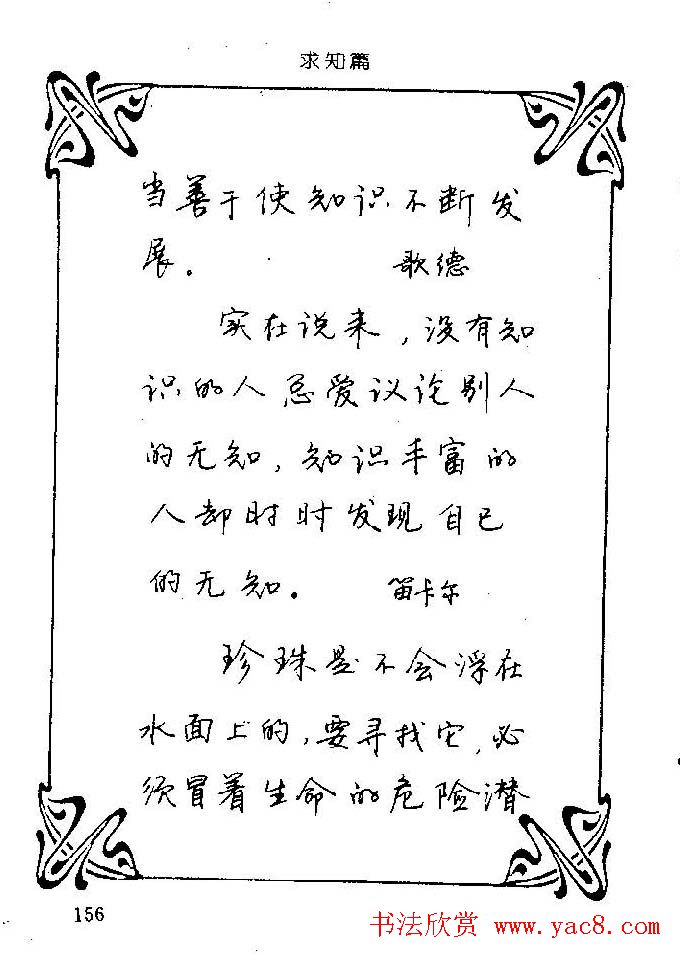 求知篇
当善于使知识不断发
展。 歌德
实在说来，没有知
识的人总爱议论别人
的无知，知识丰富的
人却时时发现自己
的无知。 笛卡尔
珍珠是不会浮在
水面上的，要寻找它，必
须冒着生命的危险潜
156
书法欣赏 www.yac8.com